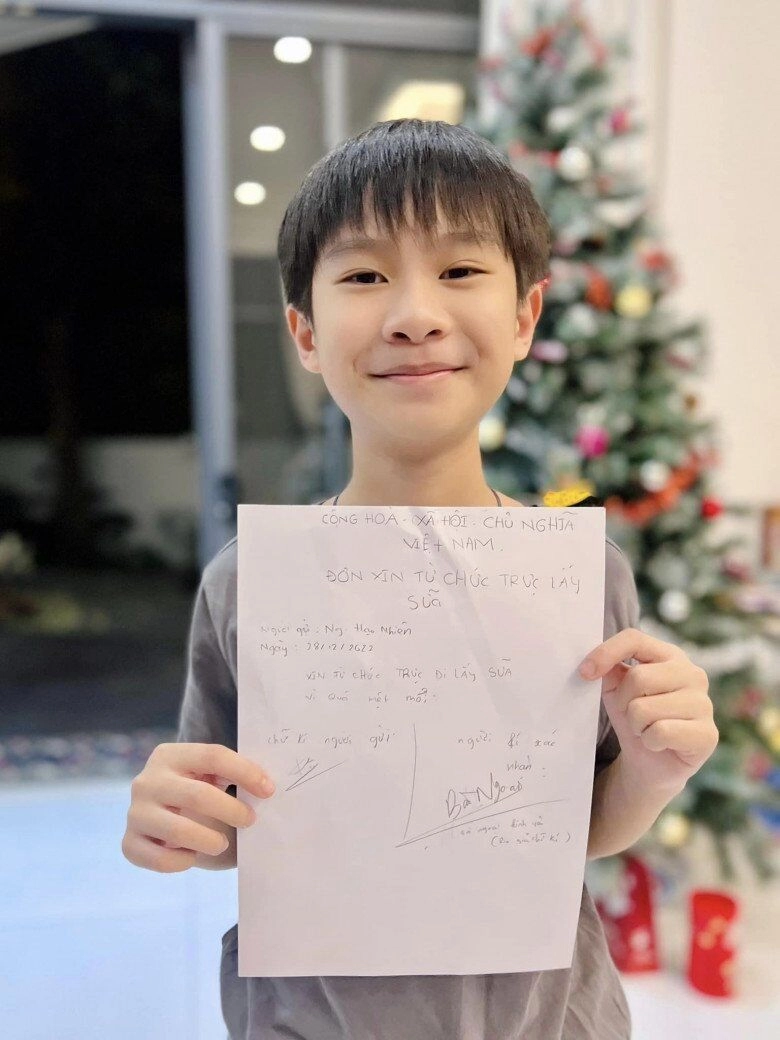 CỘNG HOÀ - XÃ HỘI - CHỦ NGHĨA
VIỆT NAM.
ĐƠN XIN TỪ CHỨC TRỰC LẤY
SỮA
Người gửi : Ng. Hạo Nhiên
Ngày : 28/12/2022
XIN TỪ CHỨC TRỰC ĐI LẤY SỮA
vì quá mệt mỏi
chữ kí người gửi
người kí xác
nhận :
Bà Ngoại